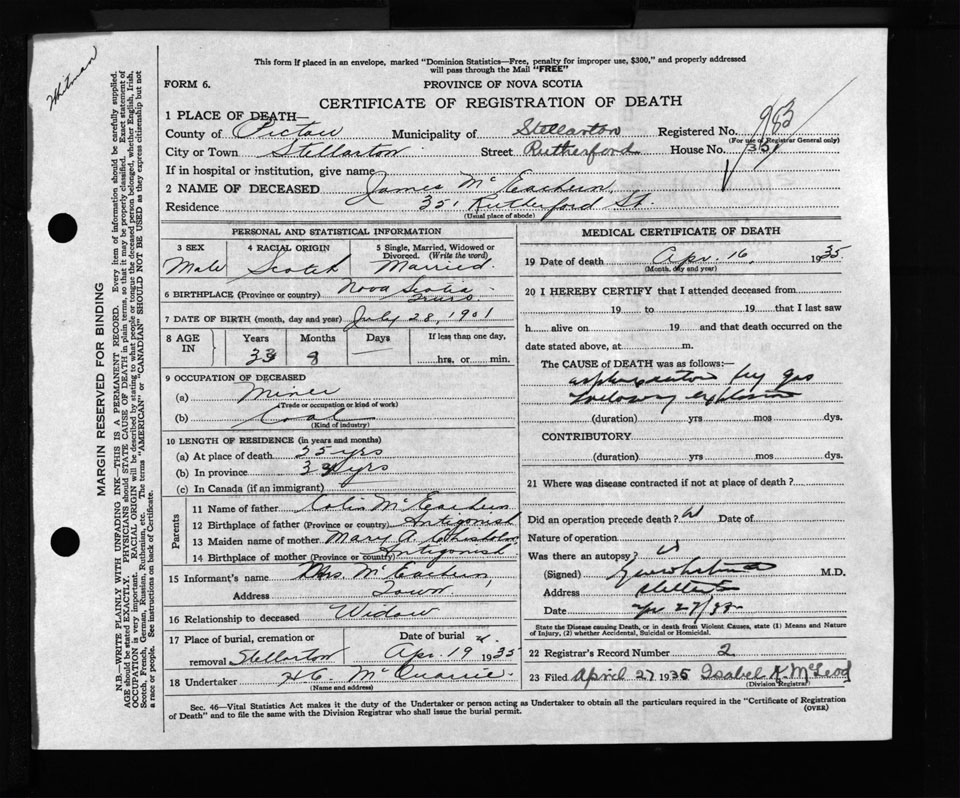 Whitman
This form if placed in an envelope, marked "Dominion Statistics—Free, penalty for improper use, $300," and properly addressed
will pass through the Mail "FREE"
FORM 6.
PROVINCE OF NOVA SCOTIA
CERTIFICATE OF REGISTRATION OF DEATH
1 PLACE OF DEATH—
County of Pictou Municipality of Stellarton Registered No. 983
(For use of Registrar General only)
City or Town Stellarton Street Rutherford House No. 351
If in hospital or institution, give name
2 NAME OF DECEASED James McEachern
Residence 351 Rutherford St.
(Usual place of abode)
PERSONAL AND STATISTICAL INFORMATION
3 SEX Male
4 RACIAL ORIGIN Scotch
5 Single, Married, Widowed or Divorced. (Write the word) Married.
6 BIRTHPLACE (Province or country) Nova Scotia Truro.
7 DATE OF BIRTH (month, day and year) July 28, 1901
8 AGE IN Years 33 Months 8 Days — If less than one day, hrs. or min.
9 OCCUPATION OF DECEASED
(a) Miner
(Trade or occupation or kind of work)
(b) Coal
(Kind of industry)
10 LENGTH OF RESIDENCE (in years and months)
(a) At place of death 25 yrs
(b) In province 33 yrs
(c) In Canada (if an immigrant)
Parents
11 Name of father Colin McEachern
12 Birthplace of father (Province or country) Antigonish
13 Maiden name of mother Mary A. Chisholm
14 Birthplace of mother (Province or country) Antigonish
15 Informant's name Mrs. McEachern,
Address Town
16 Relationship to deceased Widow
17 Place of burial, cremation or removal Stellarton Date of burial Apr. 19 1935
18 Undertaker McQuarrie
(Name and address)
MEDICAL CERTIFICATE OF DEATH
19 Date of death Apr. 16, 1935
(Month, day and year)
20 I HEREBY CERTIFY that I attended deceased from
19 to 19 that I last saw
h alive on 19 and that death occurred on the
date stated above, at m.
The CAUSE OF DEATH was as follows:—
asphyxiation by gas
following explosion
(duration) yrs mos dys.
CONTRIBUTORY
(duration) yrs mos dys.
21 Where was disease contracted if not at place of death?
Did an operation precede death? Date of
Nature of operation
Was there an autopsy?
(Signed) M.D.
Address Stellarton
Date 27/35
State the Disease causing Death, or in death from Violent Causes, state (1) Means and Nature
of Injury, (2) whether Accidental, Suicidal or Homicidal.
22 Registrar's Record Number 2
23 Filed April 27 1935 Isabel K. McLeod
(Division Registrar)
Sec. 46—Vital Statistics Act makes it the duty of the Undertaker or person acting as Undertaker to obtain all the particulars required in the "Certificate of Registration
of Death" and to file the same with the Division Registrar who shall issue the burial permit.
(OVER)
MARGIN RESERVED FOR BINDING
N.B.—WRITE PLAINLY WITH UNFADING INK—THIS IS A PERMANENT RECORD. Every item of information should be carefully supplied.
AGE should be stated EXACTLY. PHYSICIANS should STATE CAUSE OF DEATH in plain terms, so that it may be properly classified. Exact statement of
OCCUPATION is very important. RACIAL ORIGIN will be described by stating to what people or tongue the deceased person belonged, whether English, Irish,
Scotch, French, German, Russian, Ruthenian, etc. The terms "AMERICAN" or "CANADIAN" SHOULD NOT BE USED as they express citizenship but not
a race or people. See instructions on back of Certificate.